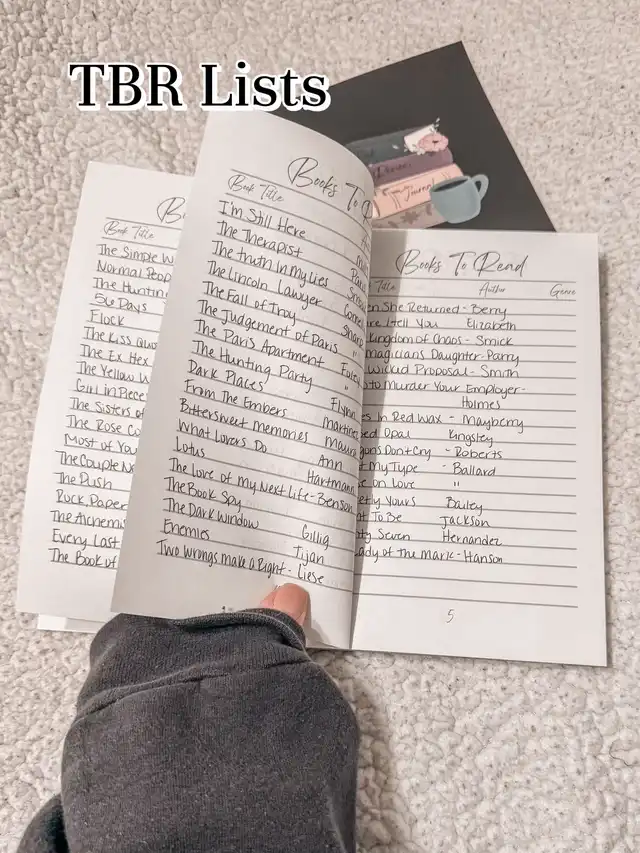 TBR Lists
Book Title
The Simple W
Normal Peop
The Huntin
56 Days
Flock
The Kiss Quo
The Ex Hex
The Yellow W
Girl in Piece
The Sisters of
The Rose Co
Most of You
The Couple Ne
The Push
Rock, Paper
The Alchemis
Every Last
The Book of
Books To
Book Title
I'm Still Here
The Therapist
The truth in My Lies
The Lincoln Lawyer
The Fall of Troy
The Judgement of Paris "
The Paris Apartment Foley
The Hunting Party "
Dark Places Flynn
From The Embers Martinez
Bittersweet Memories Maura
What Lovers Do Ann
Lotus Hartmann
The Love of My Next Life - Benson
The Book Spy
The Dark Window Gillig
Enemies Tijan
Two wrongs make a Right - Liese
Journal
Books To Read
Title Author Genre
en She Returned - Berry
I tell You Elizabeth
Kingdom of Chaos - Smick
magicians Daughter - Parry
wicked Proposal - Smith
to Murder Your Employer -
Holmes
es In Red Wax - Mayberry
ed Opal Kingsley
gons Don't Cry - Roberts
t My Type - Ballard
e on Love "
etly Yours Bailey
t To Be Jackson
ty Seven Hernandez
ady of the Mark - Hanson
5